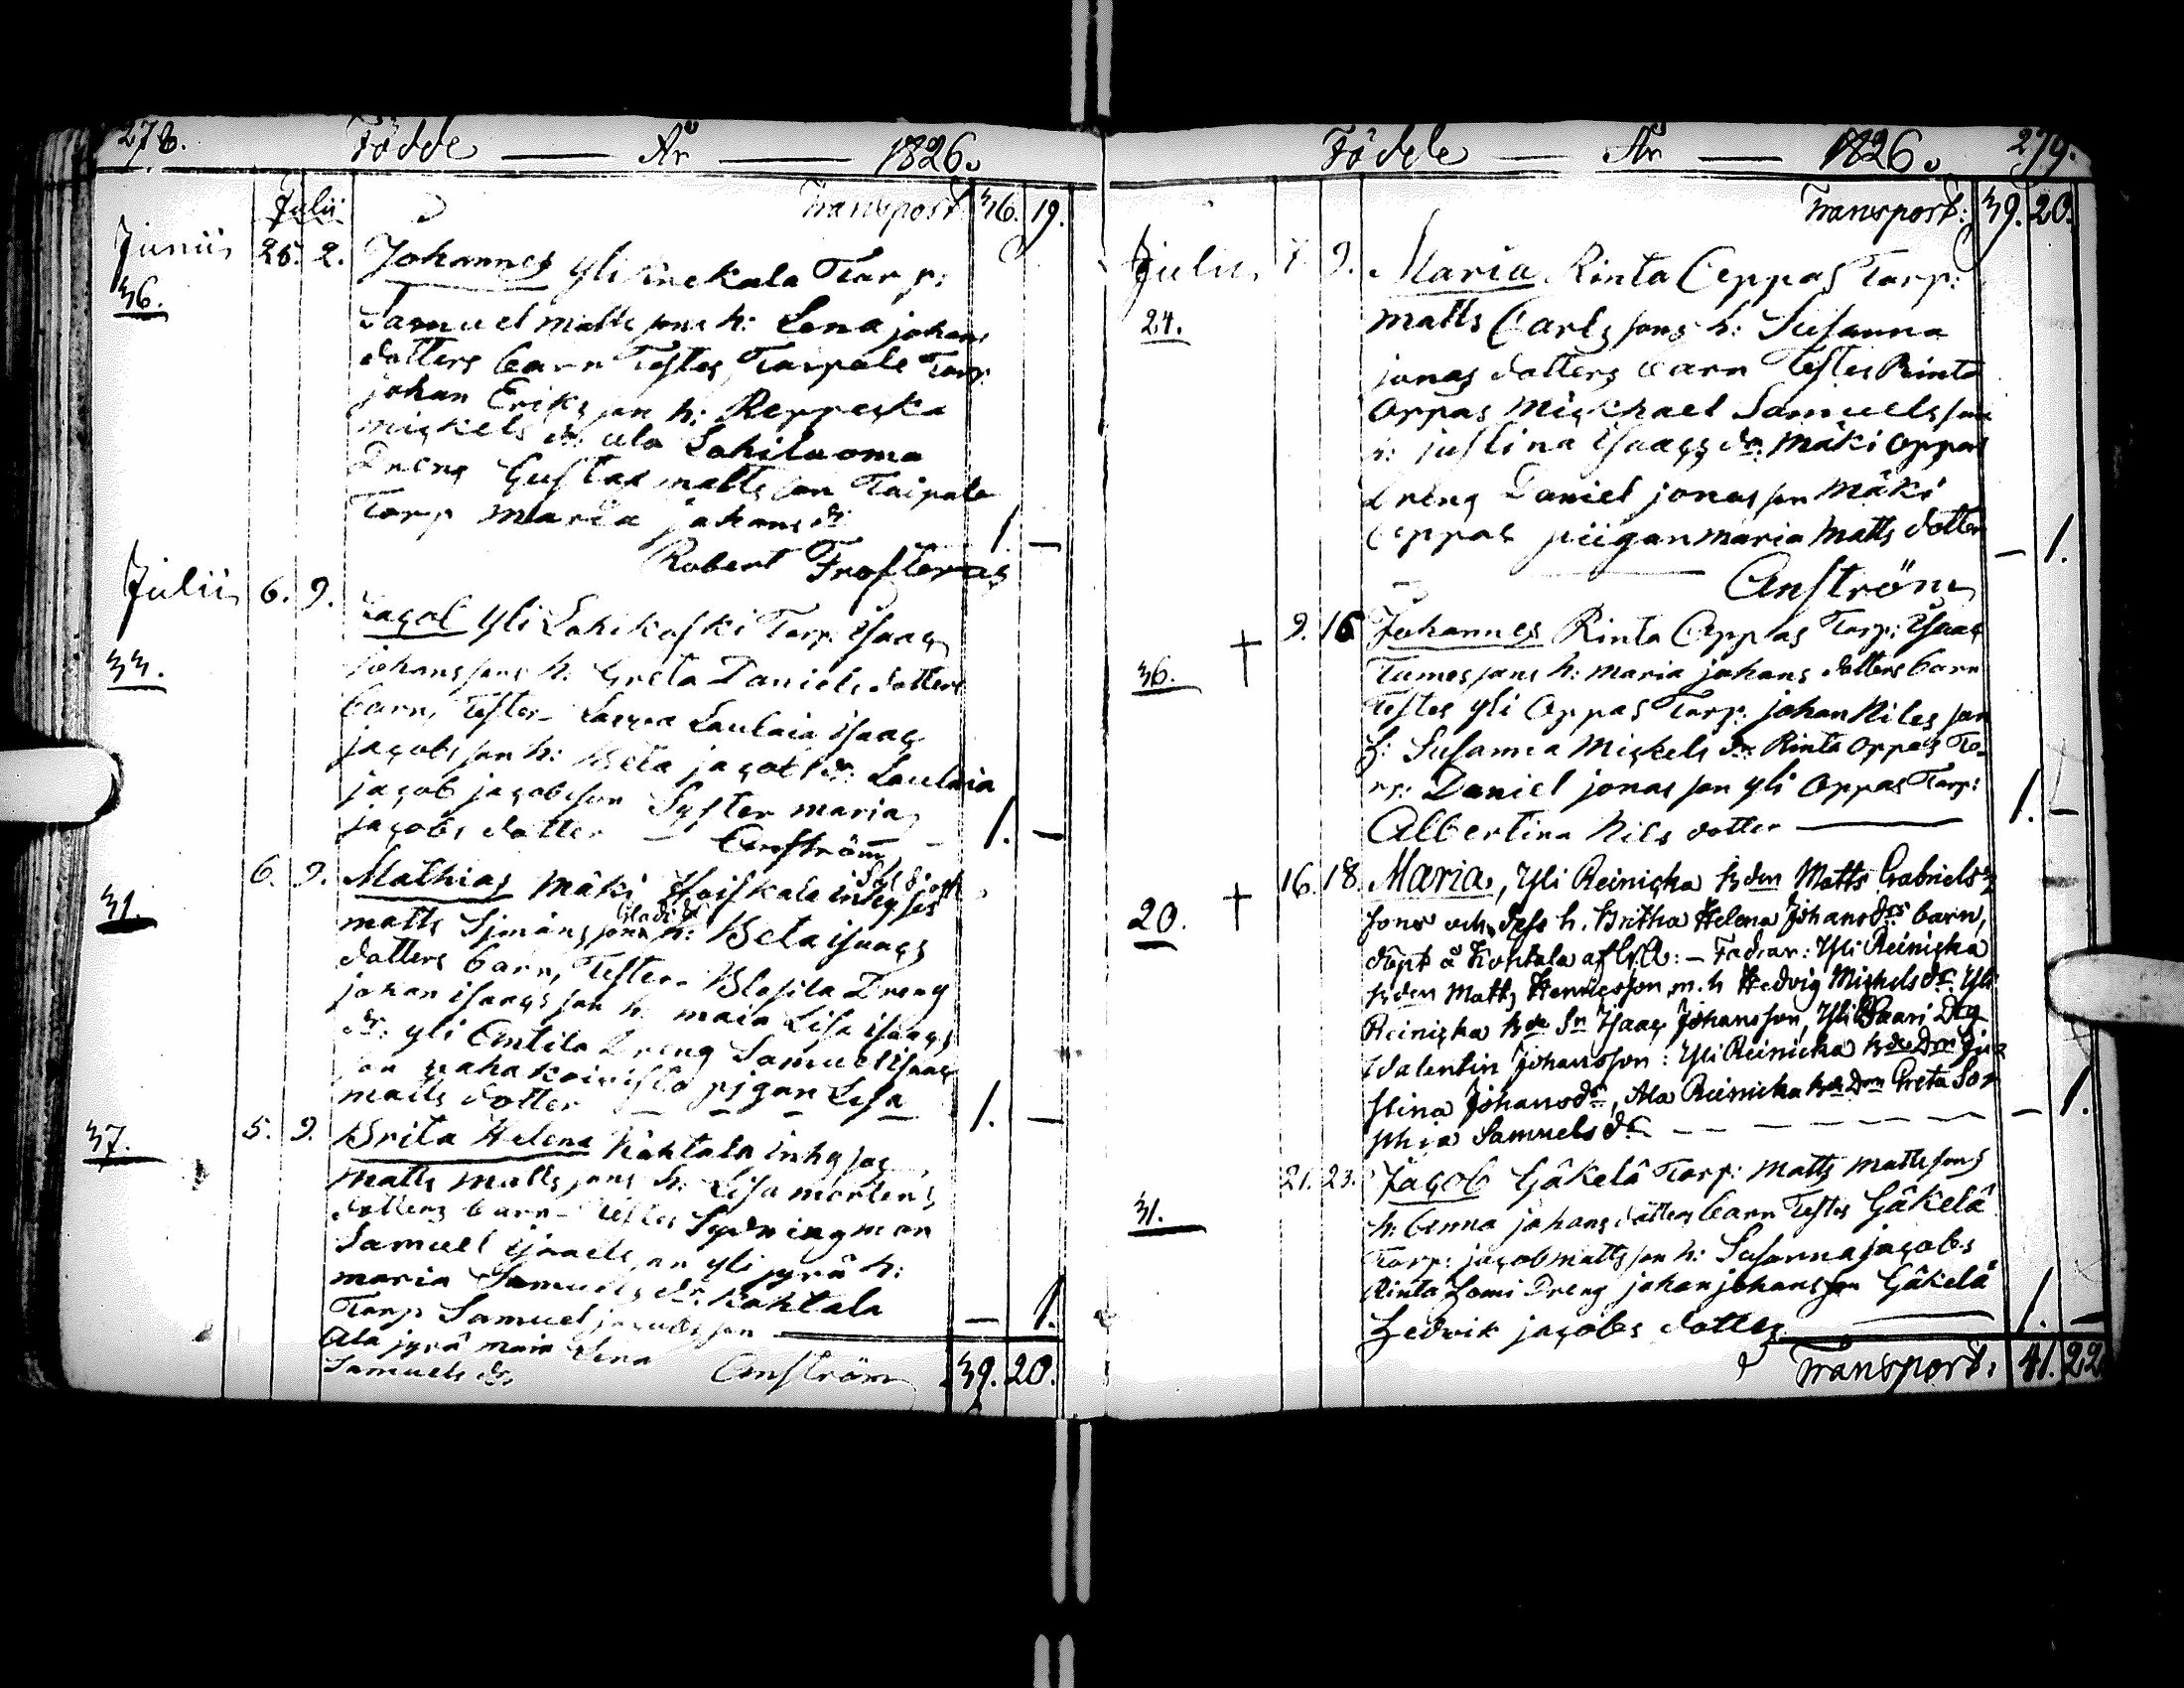 278. Födde — År — 1826.
Julii Transport. 36. 19.
Junii 25. 2. Johannes Yli Knekala Torp:
36. Samuel Matts sons h: Lena johans
dotters barn Testes Taipale Torp.
johan Eriks son h: Reppeska
mickels dr: ala Lahiluoma
Dreng Gustaf matts son Taipale
Torp maria johans dr: 1 —
Robert Frosterus
Julii 6. 9. Jacob Yli Lahikoski Torp. Isaac
33. johans sons h: Greta Daniels dotters
barn, Testes Laulaia isaac
jacobs son h: Beta jacobs dr: Laulaia
jacob jacobsson Syster maria
jacobs dotter — Enström 1. —
6. 9. Mathias Mäki inhyses
31. matts Simons sons h: Beta isaacs
dotters barn, Testes Blasila Dreng
johan isaacs son h: maia Lisa isaacs
dr: yli Antila Dreng Samuel isaac
son pigan Lisa
matts dotter — — — 1. —
37. 5. 9. Brita Helena Kahtala inhyses
matts matts sons h: Lisa mortens
dotters barn Testes Sydningman
Samuel israels son yli jyrä h:
maria Samuels dr: Kahtala
Torp Samuel son — 1.
Ala jyrä maia Lena
Samuels dr: Enström 39. 20.
Födde — År — 1826. 279.
Transport: 39. 20.
Julii 7. 9. Maria Rinta Oppas Torp:
24. matts Carls sons h: Susanna
jonas dotters barn Testes Rinta
Oppas Mickhael Samuels son
h: justina isaacs dr: mäki oppas
Dreng Daniel jonas son mäki
Oppas piigan maria Matts dotter — 1.
Enström
† 9. 16 Johannes Rinta Oppas Torp: Isaac
36. Tumas sons h: maria johans dotters barn
Testes yli Oppas Torp: johan Niles son
h: Susanna Mickels dr: Rinta oppas To-
rp: Daniel jonas son yli Oppas Torp:
Albertina Nils dotter — 1. —
† 16. 18. Maria, Yli Reinicka bden Matts Gabriels-
20. sons och dess h. Britha Helena Johansdrs barn,
döpt å Kohtala af : — Faddrar: Yli Reinicka
bden Matts Hennesson, m. h Hedvig Michelsdr. Yli
Reinicka bde Sn Isaac Johansson, Yli Saari Dg
Walentin Johansson: Yli Reinicka bde Drn Ju-
stina Johansdr, Ala Reinicka bde Drn Greta So-
phia Samuelsdr — — — — — 1.
21. 23. Jacob Gäkelä Torp: matts matts sons
31. h: Anna johans dotters barn Testes Gäkelä
Torp: jacob matts son h: Susanna jacobs
Rinta Lomi Dreng johan johansson Gäkelä
Hedvik jacobs dotter — 1. —
Transport: 41. 22